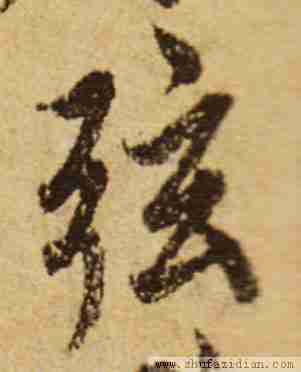 弦
www.shufazidian.com